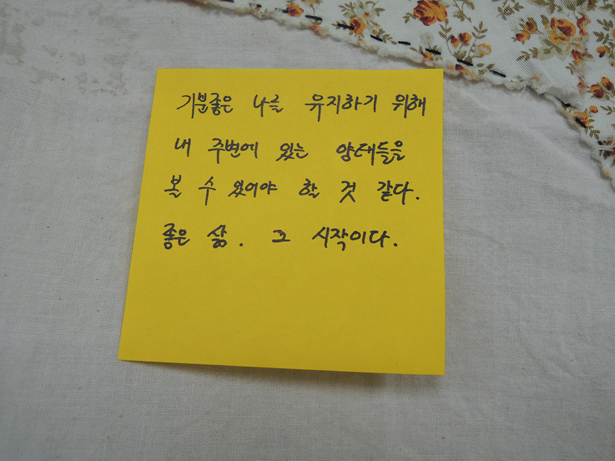 기분좋은 나를 유지하기 위해
내 주변에 있는 양태들을
볼 수 있어야 할 것 같다.
좋은 삶. 그 시작이다.